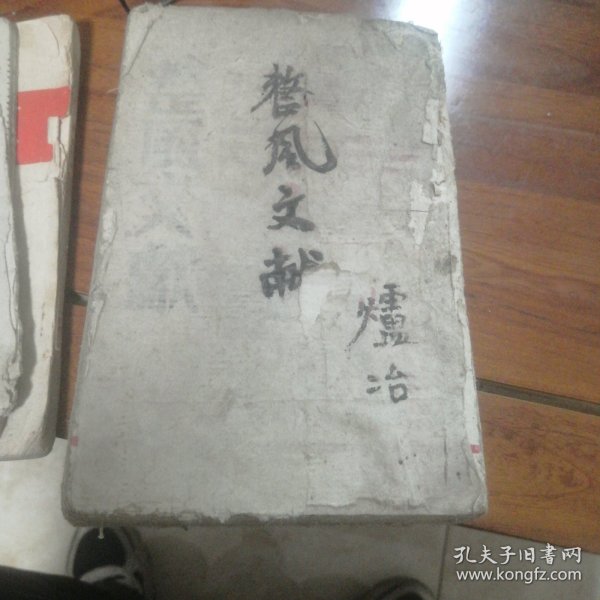 整风文献
爐冶
孔夫子旧书网
www.kongfz.com